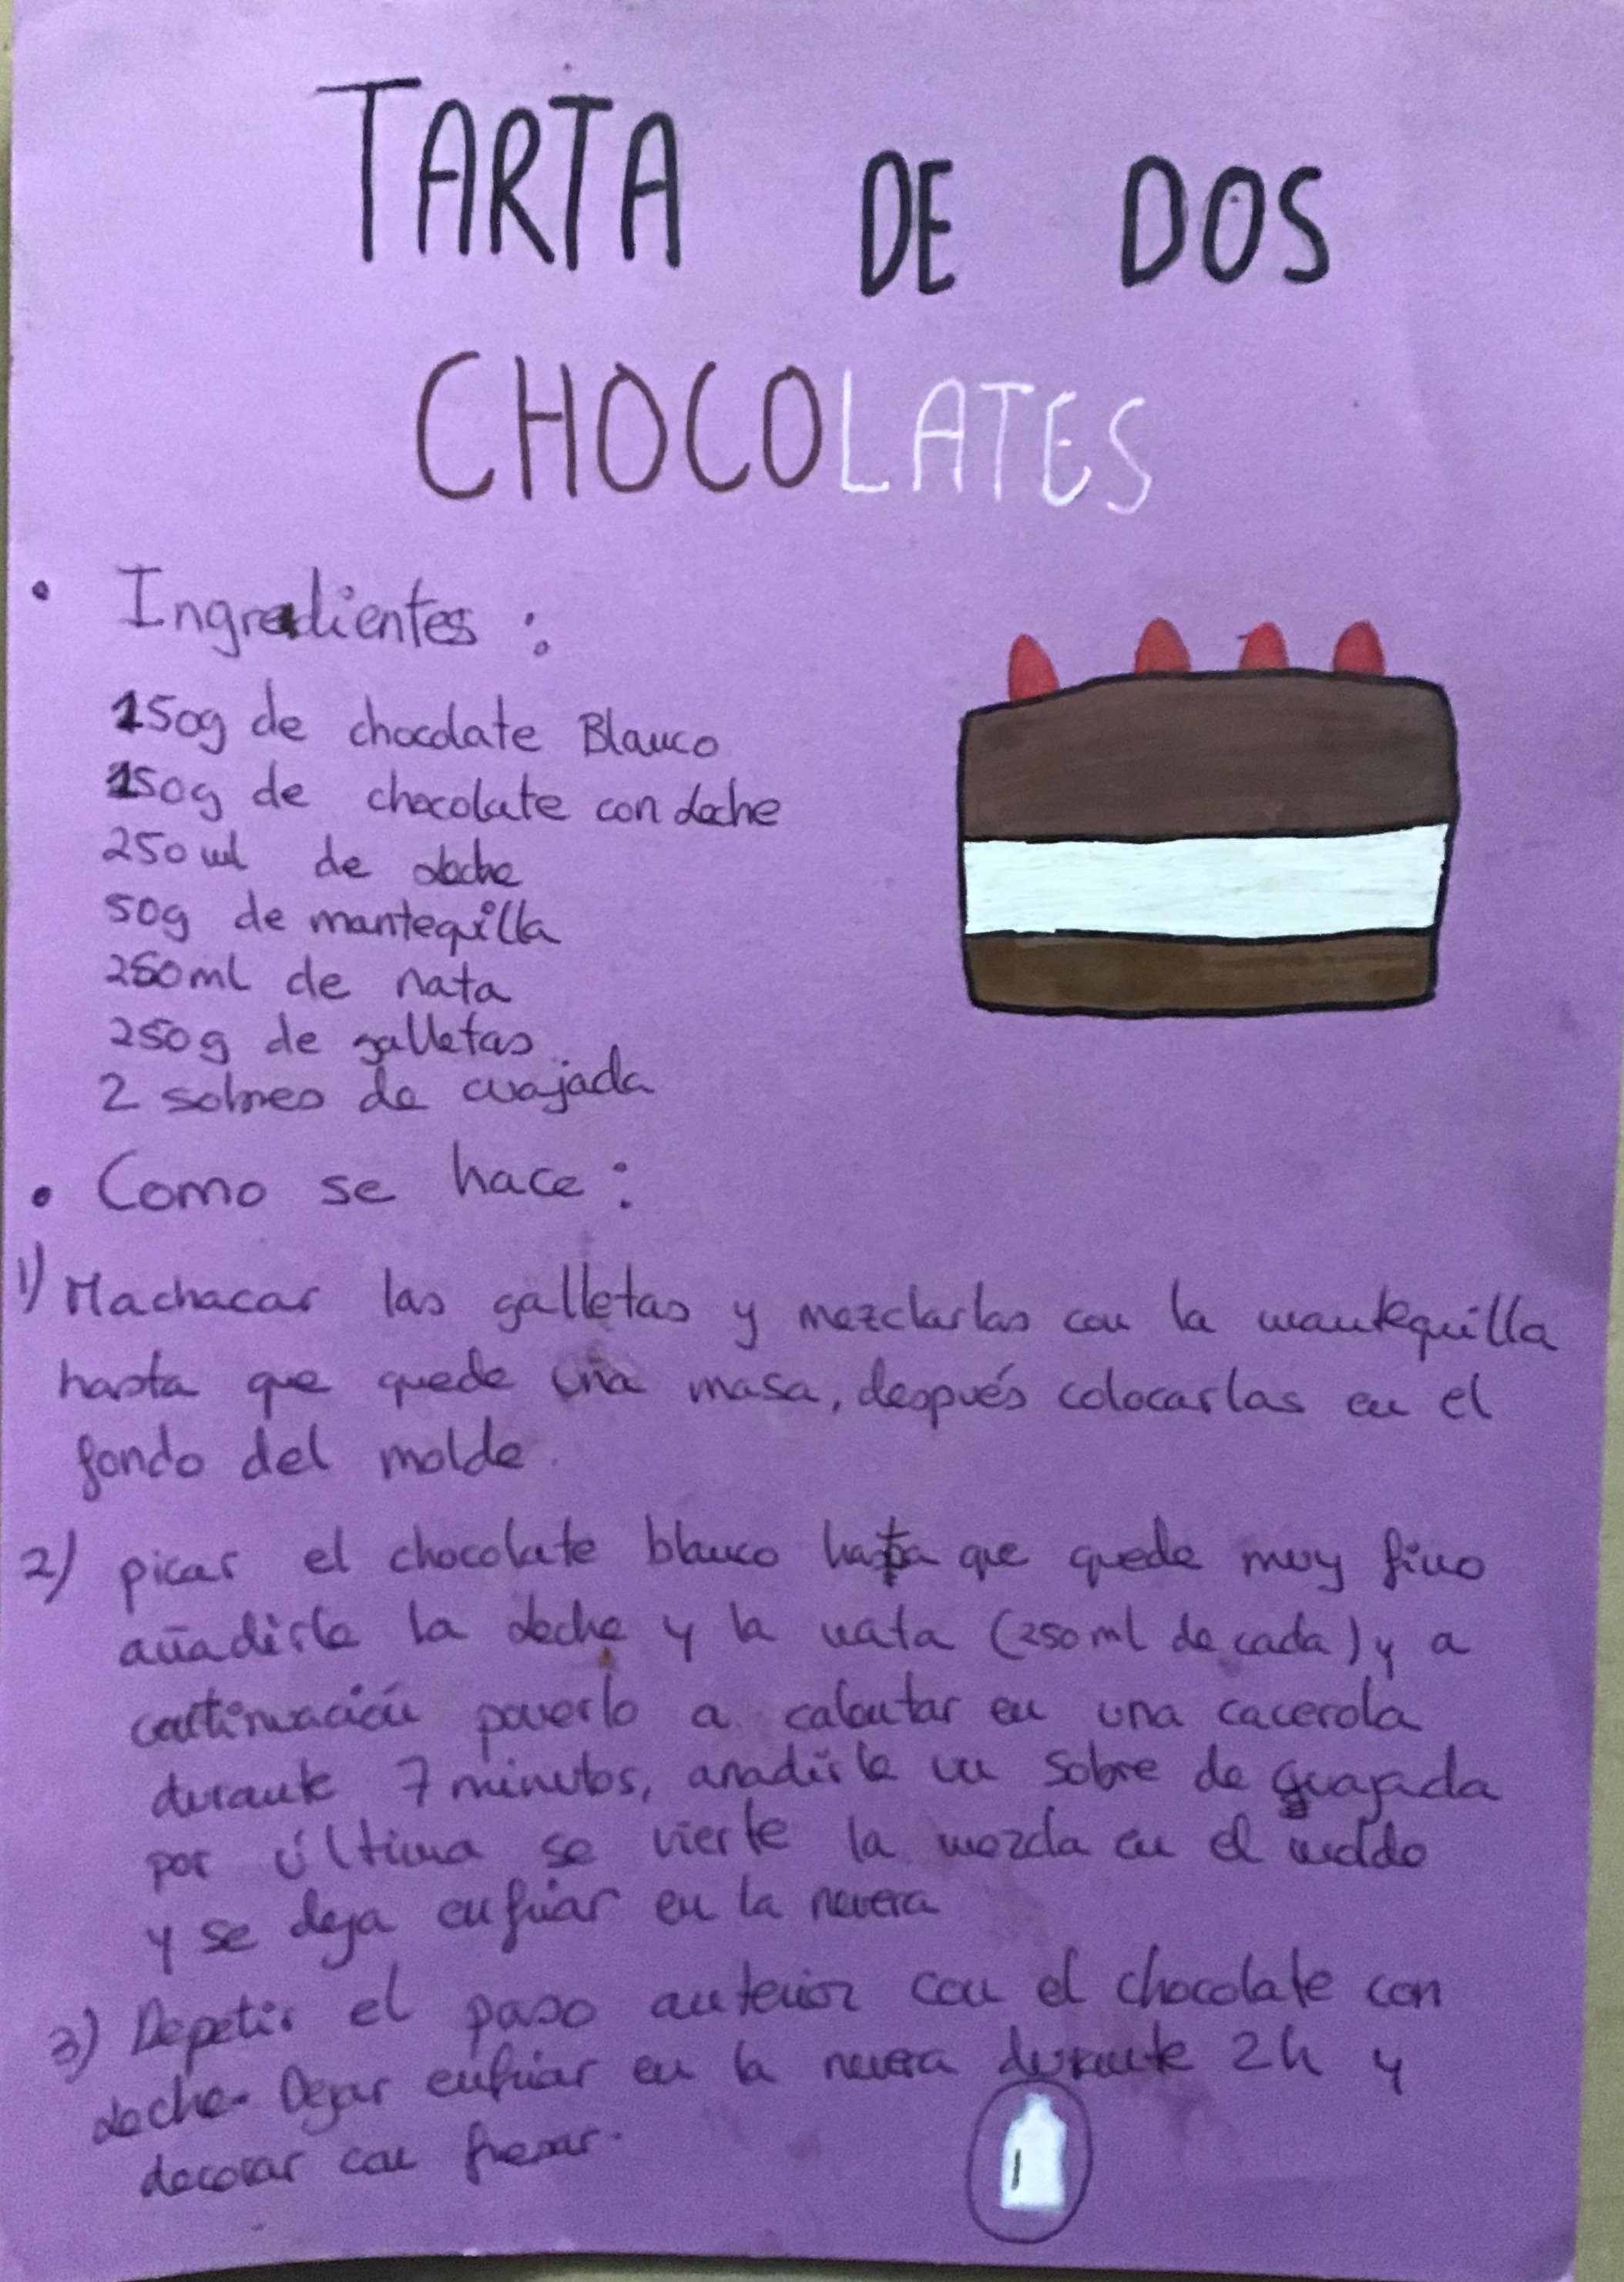 TARTA DE DOS
CHOCOLATES
• Ingredientes :
150g de chocolate Blanco
150g de chocolate con leche
250 ml de leche
50g de mantequilla
250ml de nata
250g de galletas
2 sobres de cuajada
• Como se hace :
1) Machacar las galletas y mezclarlas con la mantequilla
hasta que quede una masa, después colocarlas en el
fondo del molde.
2) picar el chocolate blanco hasta que quede muy fino
añadirle la leche y la nata (250ml de cada) y a
continuación ponerlo a calentar en una cacerola
durante 7 minutos, anadirle un sobre de guajada
por última se vierte la mezcla en el molde
y se deja enfriar en la nevera
3) Repetir el paso anterior con el chocolate con
leche. Dejar enfriar en la nevera durante 2h y
decorar con fresas.